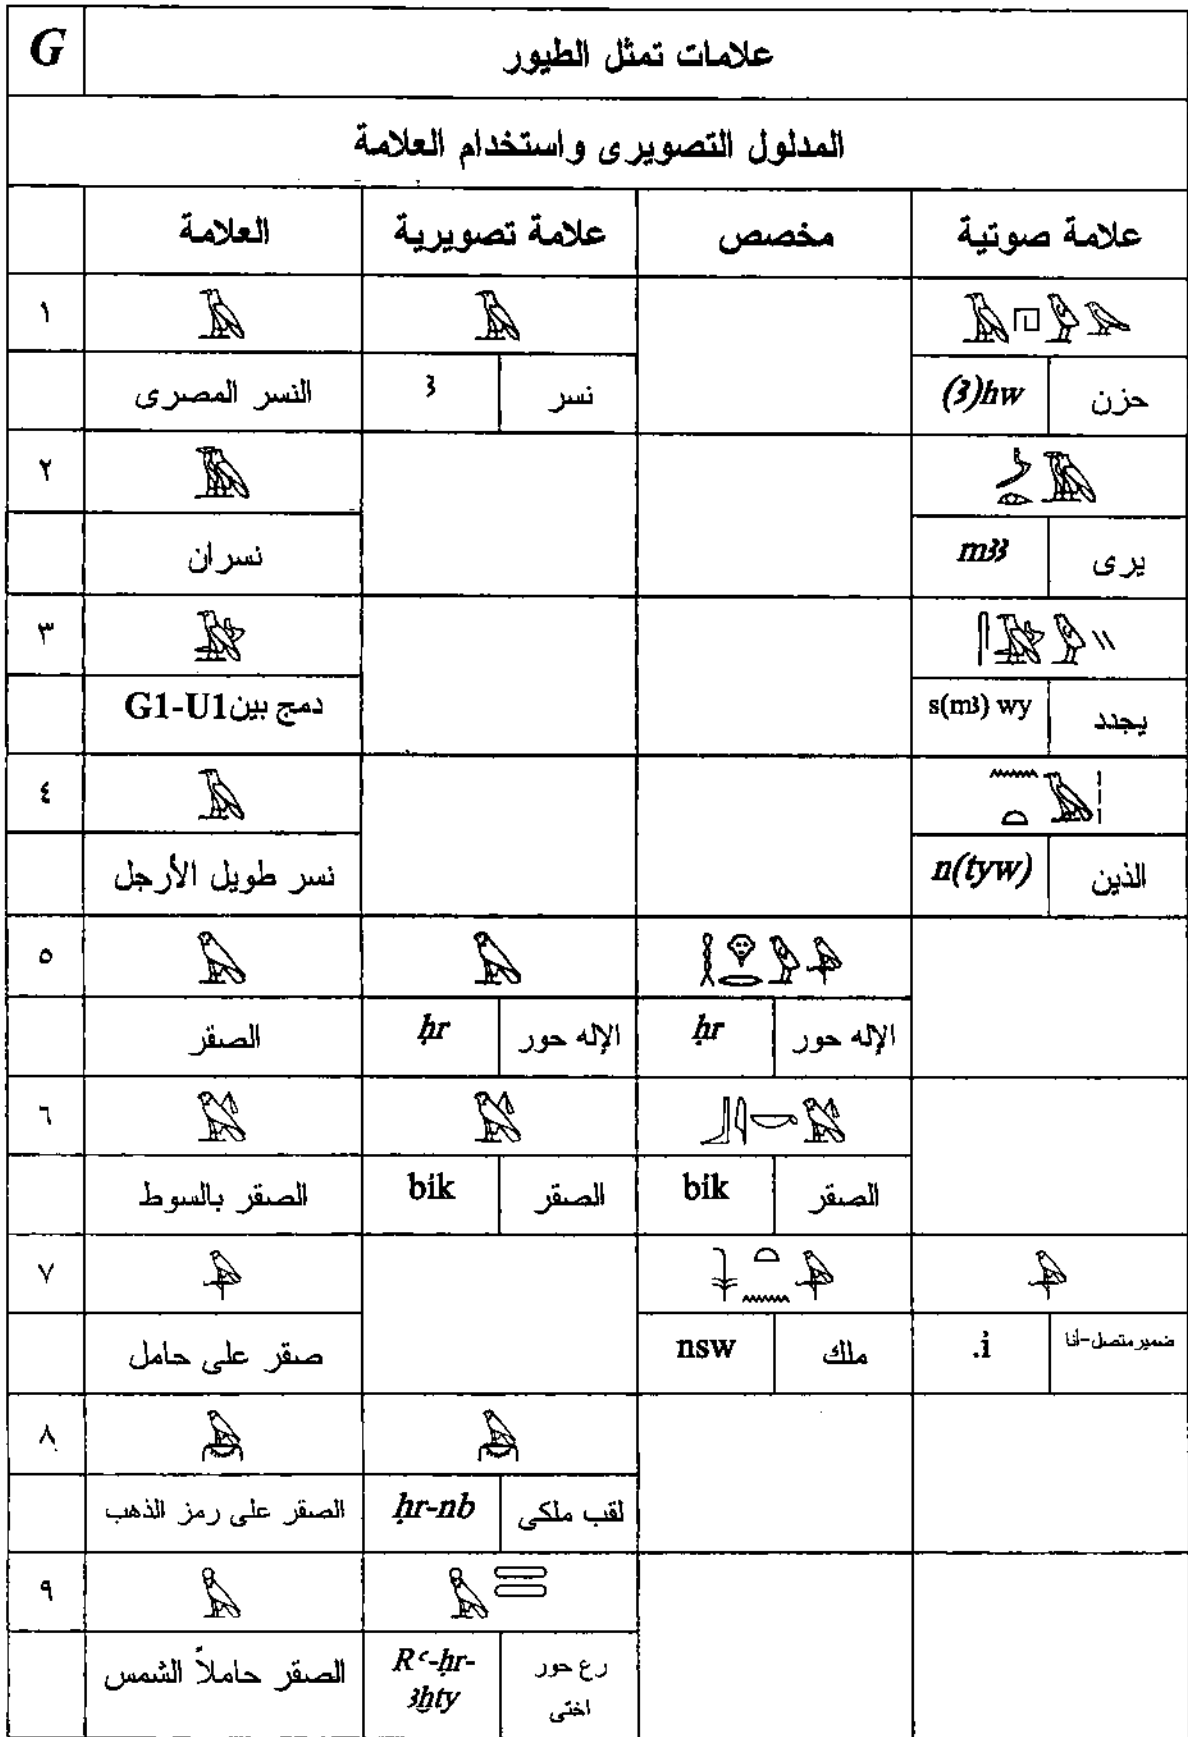 G علامات تمثل الطيور
المدلول التصويرى واستخدام العلامة
العلامة علامة تصويرية مخصص علامة صوتية
١
النسر المصرى ꜣ نسر (ꜣ)hw حزن
٢
نسران mꜣꜣ يرى
٣
دمج بين G1-U1 s(mꜣ) wy يجدد
٤
نسر طويل الأرجل n(tyw) الذين
٥
الصقر ḥr الإله حور ḥr الإله حور
٦
الصقر بالسوط bik الصقر bik الصقر
٧
صقر على حامل nsw ملك .i ضمير متصل-أنا
٨
الصقر على رمز الذهب ḥr-nb لقب ملكى
٩
الصقر حاملاً الشمس Rꜥ-ḥr- رع حور
ꜣẖty اختى